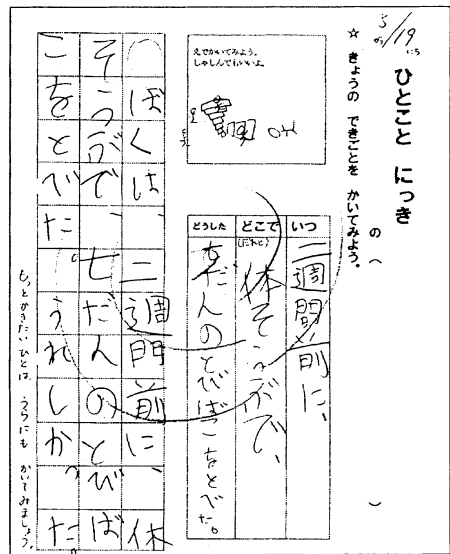 5/19
がつ にち
ひとこと にっき
の（ ）
☆ きょうの できごとを かいてみよう。
えでかいてみよう。
しゃしんでもいいよ。
いつ
二週間前に、
どこで
(だれと)
体そうぶで、
どうした
七だんのとびばこをとべた。
ぼくは、二週間前に、体
そうぶで、七だんのとびば
こをとべた。うれしかった。
もっとかきたいひとは、うらにも かいてみましょう。